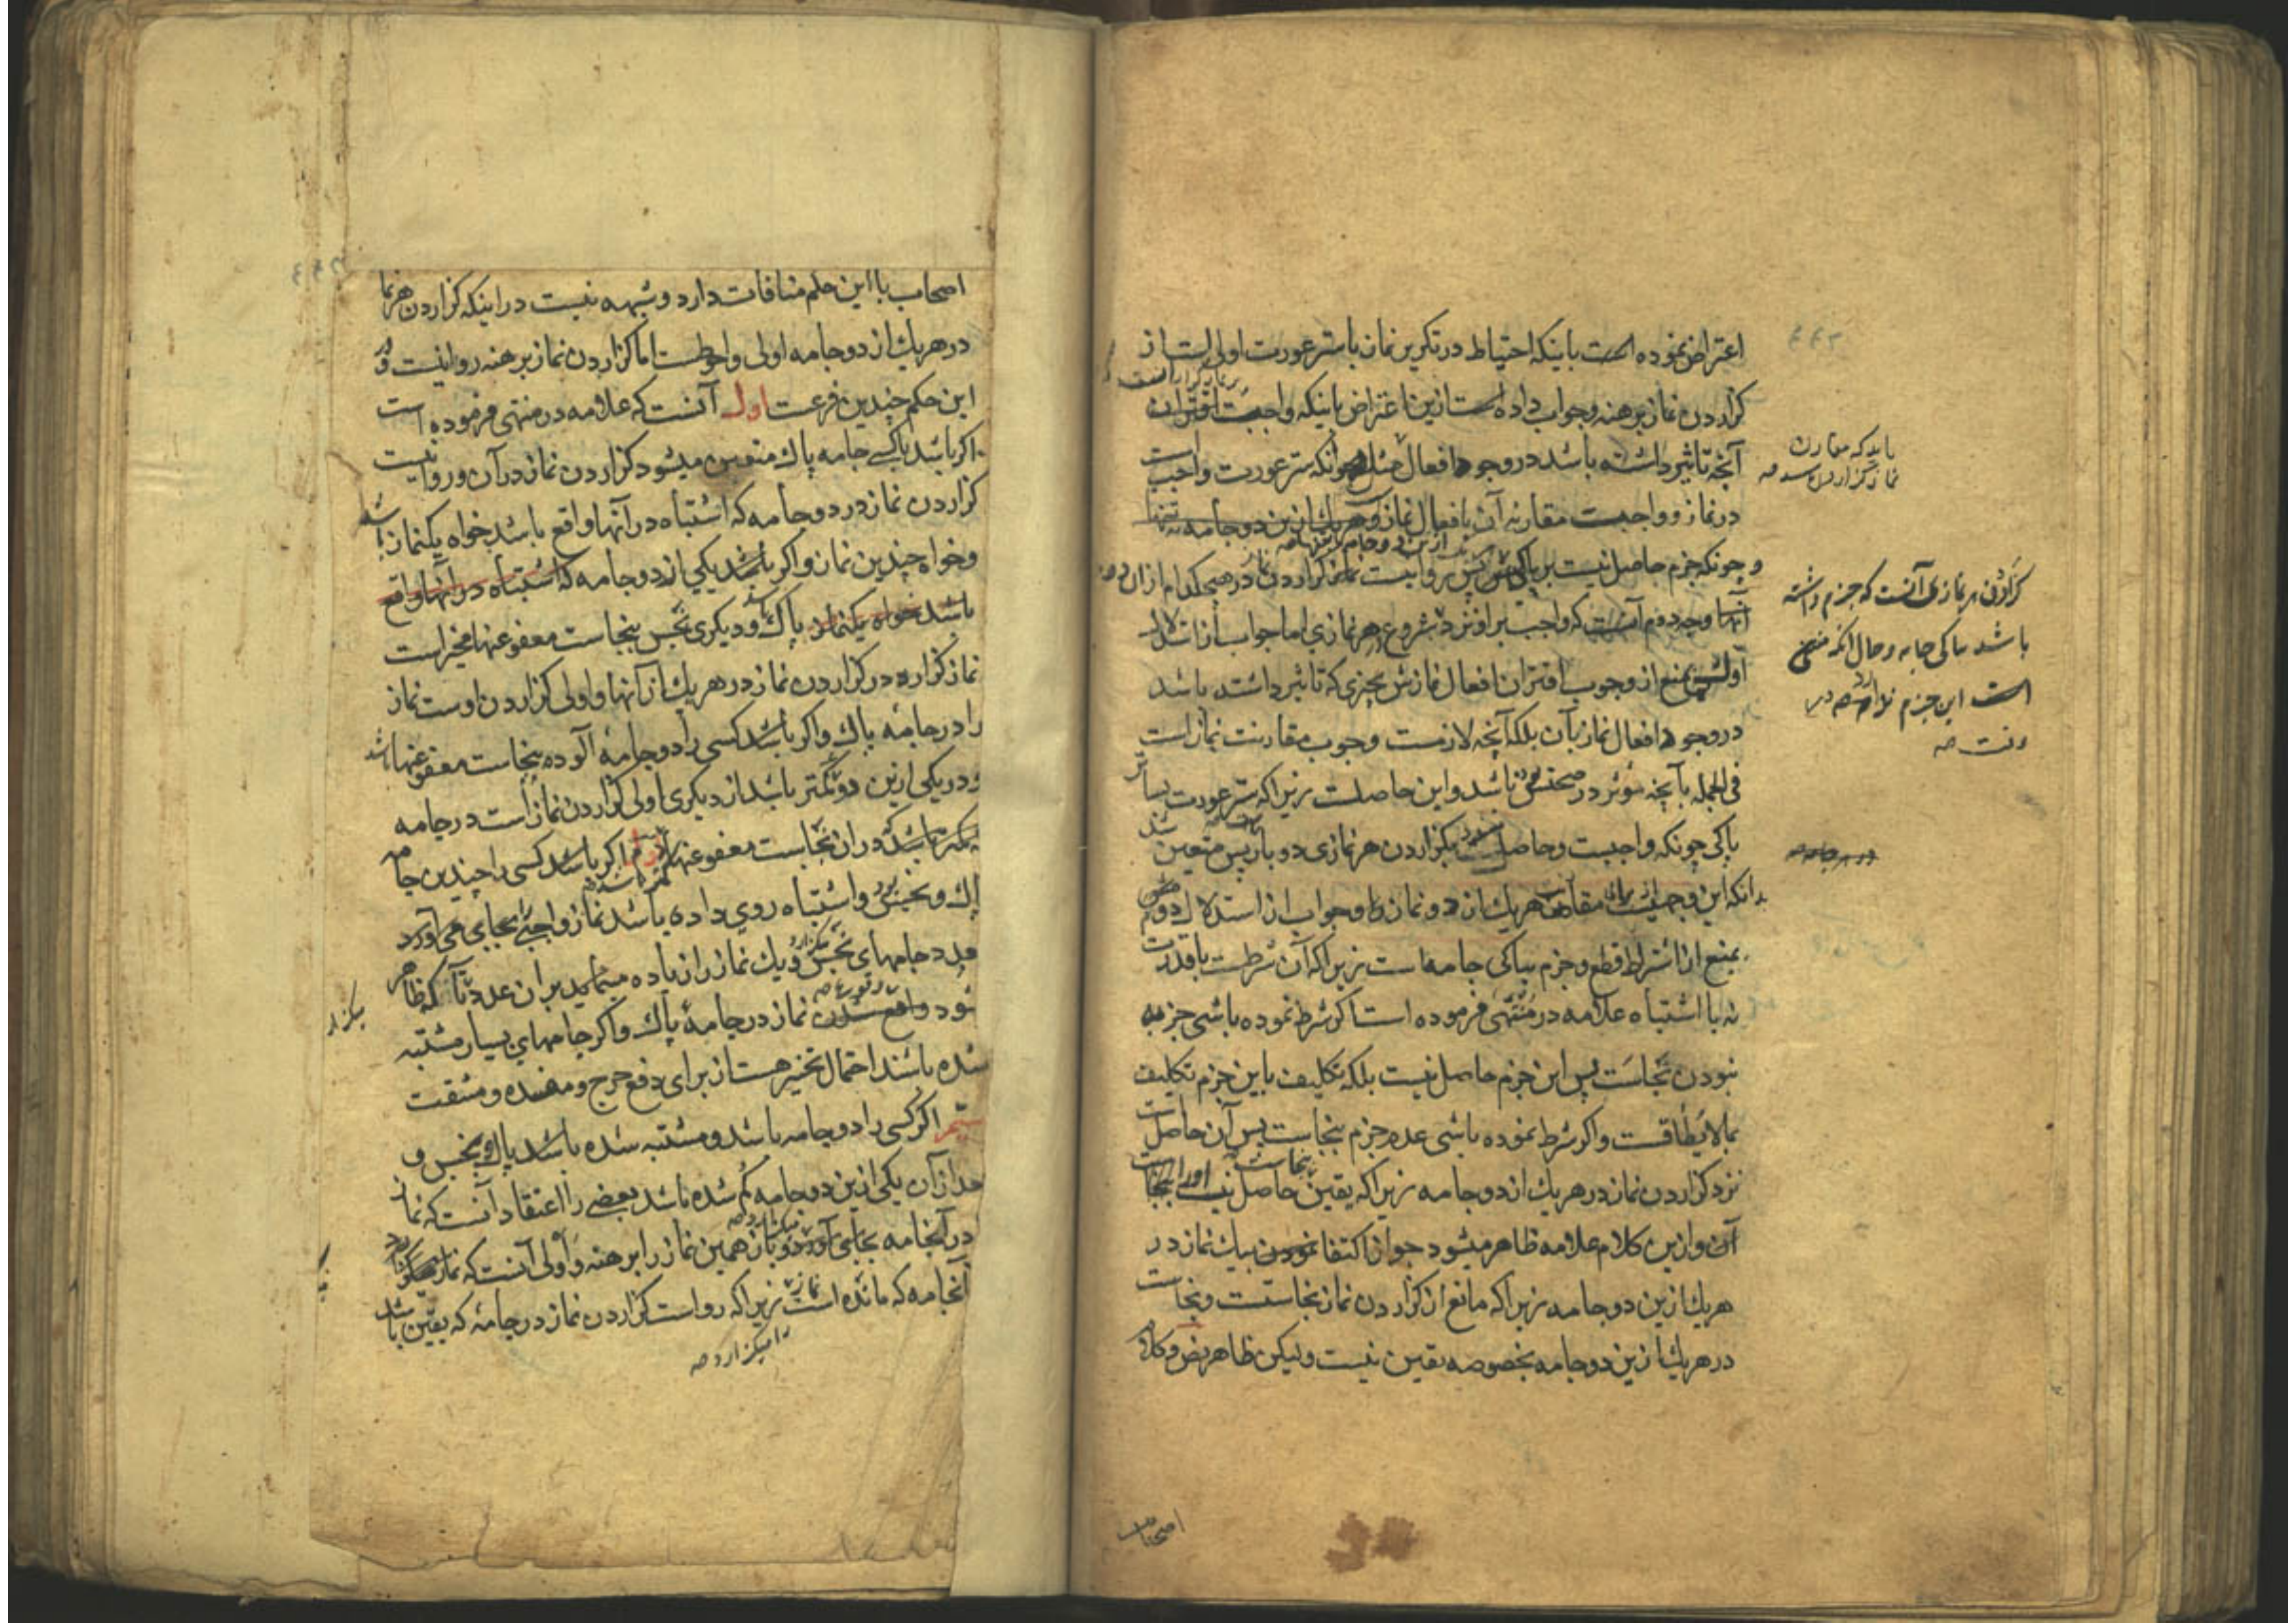 اعتراض نموده است باینکه احتیاط در تکریر نماز با ستر عورت اولی است از
کزاردن نماز برهنه وجواب داده است ازین اعتراض باینکه واجبست اقتران
آنچه تاثیر داشته باشد در وجوه افعال چونکه ستر عورت واجب است
در نماز و واجبست مقارنه آن بافعال نماز وهر یك ازین دو جامه نه تنها
و چونکه جزم حاصل نیست بر پاکی پس روا نیست نماز کزاردن در هیچکدام ازان
آنها وجه دوم آنست که واجب بر او نزد شروع هر نمازی اما جواب از استدلال
اول بمنع از وجوب اقتران افعال نمازش بچیزی که تاثیر داشته باشد
در وجوه افعال نماز بآن بلکه آنچه لازمست وجوب مقارنت نماز است
فی الجمله بآنچه مؤثر در صحتش باشد واین حاصلست زیراکه ستر عورت
پاکی چونکه واجبست وحاصل بکزاردن هر نمازی دو بار پس متعین
بدانکه این هر یك از دو نماز را وجواب از استدلال دوم
بمنع از اشتراط قطع وجزم بپاکی جامه است زیراکه آن شرطست با قدرت
نه با اشتباه علامه در منتهی فرموده است اکر شرط نموده باشی جزم به
نبودن نجاست پس این جزم حاصل نیست بلکه تکلیف باین جزم تکلیف
بمالایطاقست واکر شرط نموده باشی عدم جزم بنجاست پس آن حاصل است
نزد کزاردن نماز در هر یك از دو جامه زیراکه یقین حاصل نیست
آن وازین کلام علامه ظاهر میشود جواز اکتفا نمودن بیك نماز در
هر یك ازین دو جامه زیراکه مانع از کزاردن نماز نجاستست ونجاست
در هر یك ازین دو جامه بخصوصه یقین نیست ولیکن ظاهر نص وکلام
باید که مقارن
نماز کزاردن
کزاردن هر نمازی آنست که جزم داشته
باشد بپاکی جامه وحال آنکه
است این جزم
اصحاب
اصحاب با این حکم منافات دارد وشبهه نیست در اینکه کزاردن هر نماز
در هر یك از دو جامه اولی واحوطست اما کزاردن نماز برهنه روا نیست و در
این حکم چندین فرعست اول آنست که علامه در منتهی فرموده است
اکر باشد باکسی جامه پاك متعین میشود کزاردن نماز در آن وروا نیست
کزاردن نماز در دو جامه که اشتباه در آنها واقع باشد خواه یکنماز باشد
وخواه چندین نماز واکر باشد یکی از دو جامه که اشتباه در آنها واقع
باشد خواه یکنماز پاك ودیکری نجس بنجاست معفو عنها مخیر است
نماز کزارد در کزاردن نماز در هر یك از آنها واولی کزاردن اوست نماز
را در جامه پاك واکر باشد کسی را دو جامه آلوده بنجاست معفو عنها باشد
ودر یکی ازین دو کمتر باشد از دیکری اولی کزاردن نماز است در جامه
که کمتر باشد در آن نجاست معفو عنها دوم اکر باشد کسی را چندین جامه
پاك ونجس واشتباه روی داده باشد نماز واجبی بجای می آورد
بعدد جامهای نجس ویك نماز را زیاده مینماید بر ان عدد تا آنکه ظاهر
شود واقع شدن نماز در جامه پاك واکر جامهای بسیار مشتبه
شده باشند احتمال تخییر هست از برای دفع حرج ومفسده ومشقت
سیم اکر کسی را دو جامه باشد ومشتبه شده باشد پاك بنجس و
بعد از آن یکی ازین دو جامه کم شده باشد بعضی را اعتقاد آنست که نماز
در آنجامه بجای آورد وباز همین نماز را برهنه واولی آنست که نماز
آنجامه که مانده است زیراکه رواست کزاردن نماز در جامه که یقین باشد
را میکزارد